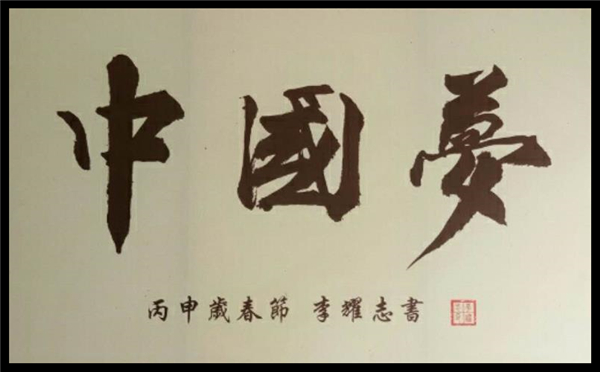 中國夢
丙申歲春節 李耀志書